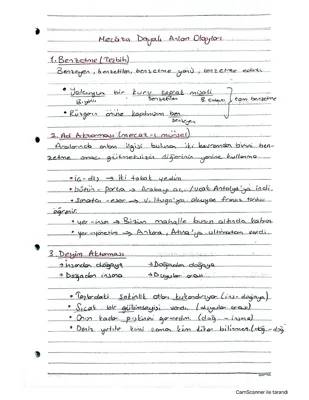 Mecaza Dayalı Anlam Olayları
1. Benzetme (Teşbih)
Benzeyen, benzetilen, benzetme yönü, benzetme edatı
• Yalnızım bir kuru yaprak misali
B. yönü benzetilen B. edatı } tam benzetme
• Rüzgarın önüne kapılmışım ben
benzeyen
2. Ad Aktarması (mecaz-ı mürsel)
Aralarında anlam ilgisi bulunan iki kavramdan birini benzetme
amacı gütmeksizin diğerinin yerine kullanma
• iç-dış → İki tabak yedim
• bütün-parça → Arabayı aç. /Uçak Antalya'ya indi.
• Sanatçı-eser → V. Hugo'yu okuyan
öğrenir
• yer-insan → Bizim mahalle bunun altında kalmaz
• yer-yönetim → Ankara, Atina'ya ultimatom verdi.
3. Deyim Aktarması
→ İnsandan doğaya → Doğadan doğaya
→ Doğadan insana → Duyular arası
• Toplardaki sakinlik otları (ins-doğaya)
• Sıcak bir gülümseyişi vardı. (duyular arası)
• Onun kadar pişkinini görmedim. (doğ-insana)
• Deniz yırtılır kimi zaman kim diker bilinmez. (doğ-doğ)
CamScanner ile tarandı